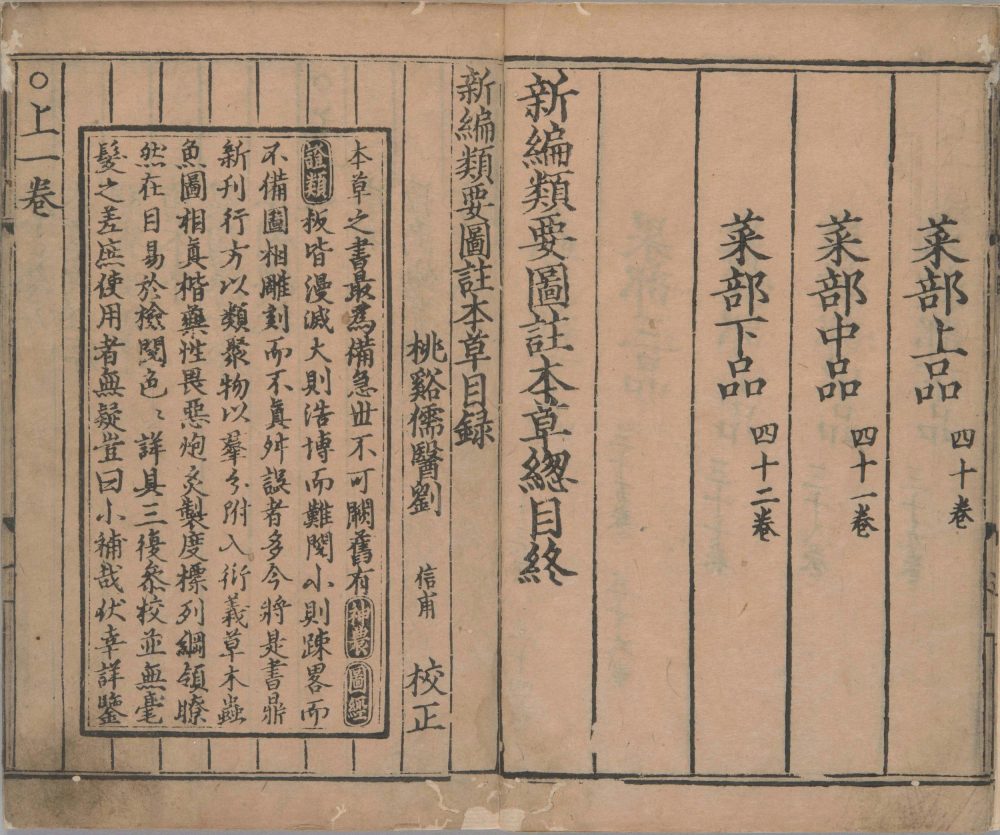 菜部上品 四十卷
菜部中品 四十一卷
菜部下品 四十二卷
新編類要圖註本草緫目終
新編類要圖註本草目録
桃谿儒醫劉 信甫 校正
本草之書最爲備急世不可闕舊有神農圖經
證類板皆漫滅大則浩博而難閱小則踈畧而
不備圖相雕刻而不真舛誤者多今將是書鼎
新刊行方以類聚物以羣分附入衍義草木蟲
魚圖相真楷藥性畏惡炮炙製度標列綱領瞭
然在目易於檢閱色〻詳具三復叅校並無毫
髮之差庶使用者無疑豈曰小補哉伏幸詳鑒
○上一卷